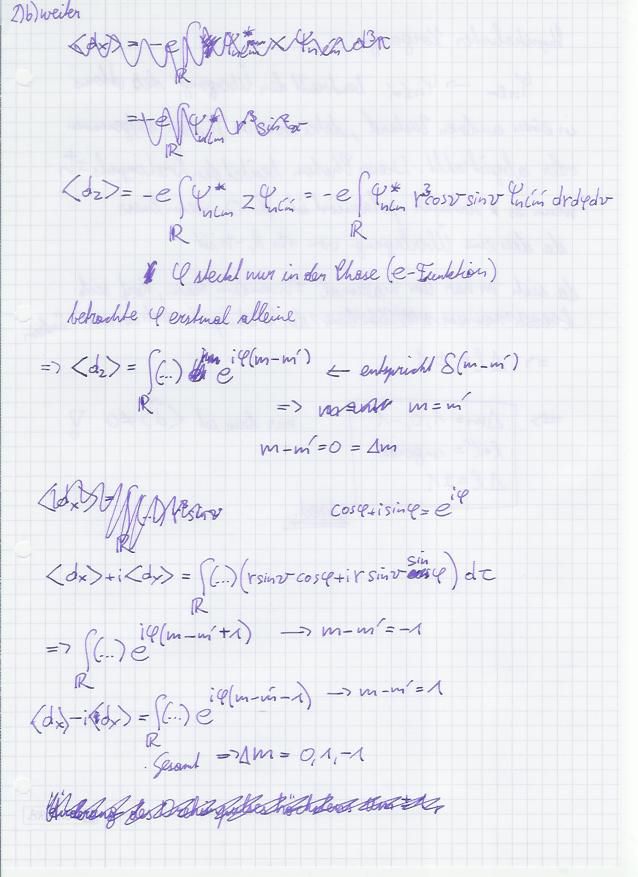 2)b) weiter
<dx> = -e ∫ℝ ψ*nlm x ψnlm d³r
= -e ∫ℝ ψ*nlm r³ sin²
<dz> = -e ∫ℝ ψ*nlm z ψn'l'm' = -e ∫ℝ ψ*nlm r³ cosϑ sinϑ ψn'l'm' dr dφ dϑ
φ steckt nur in der Phase (e-Funktion)
betrachte φ erstmal alleine
=> <dz> = ∫ℝ (...) e^{iφ(m-m')} ← entspricht δ(m-m')
=> m=m'
m-m'=0=Δm
cosφ+isinφ=e^{iφ}
<dx>+i<dy> = ∫ℝ (...) (rsinϑ cosφ+ir sinϑ sinφ) dτ
=> ∫ℝ (...) e^{iφ(m-m'+1)} → m-m'=-1
<dx>-i<dy> = ∫ℝ (...) e^{iφ(m-m'-1)} → m-m'=1
Gesamt => Δm = 0,1,-1